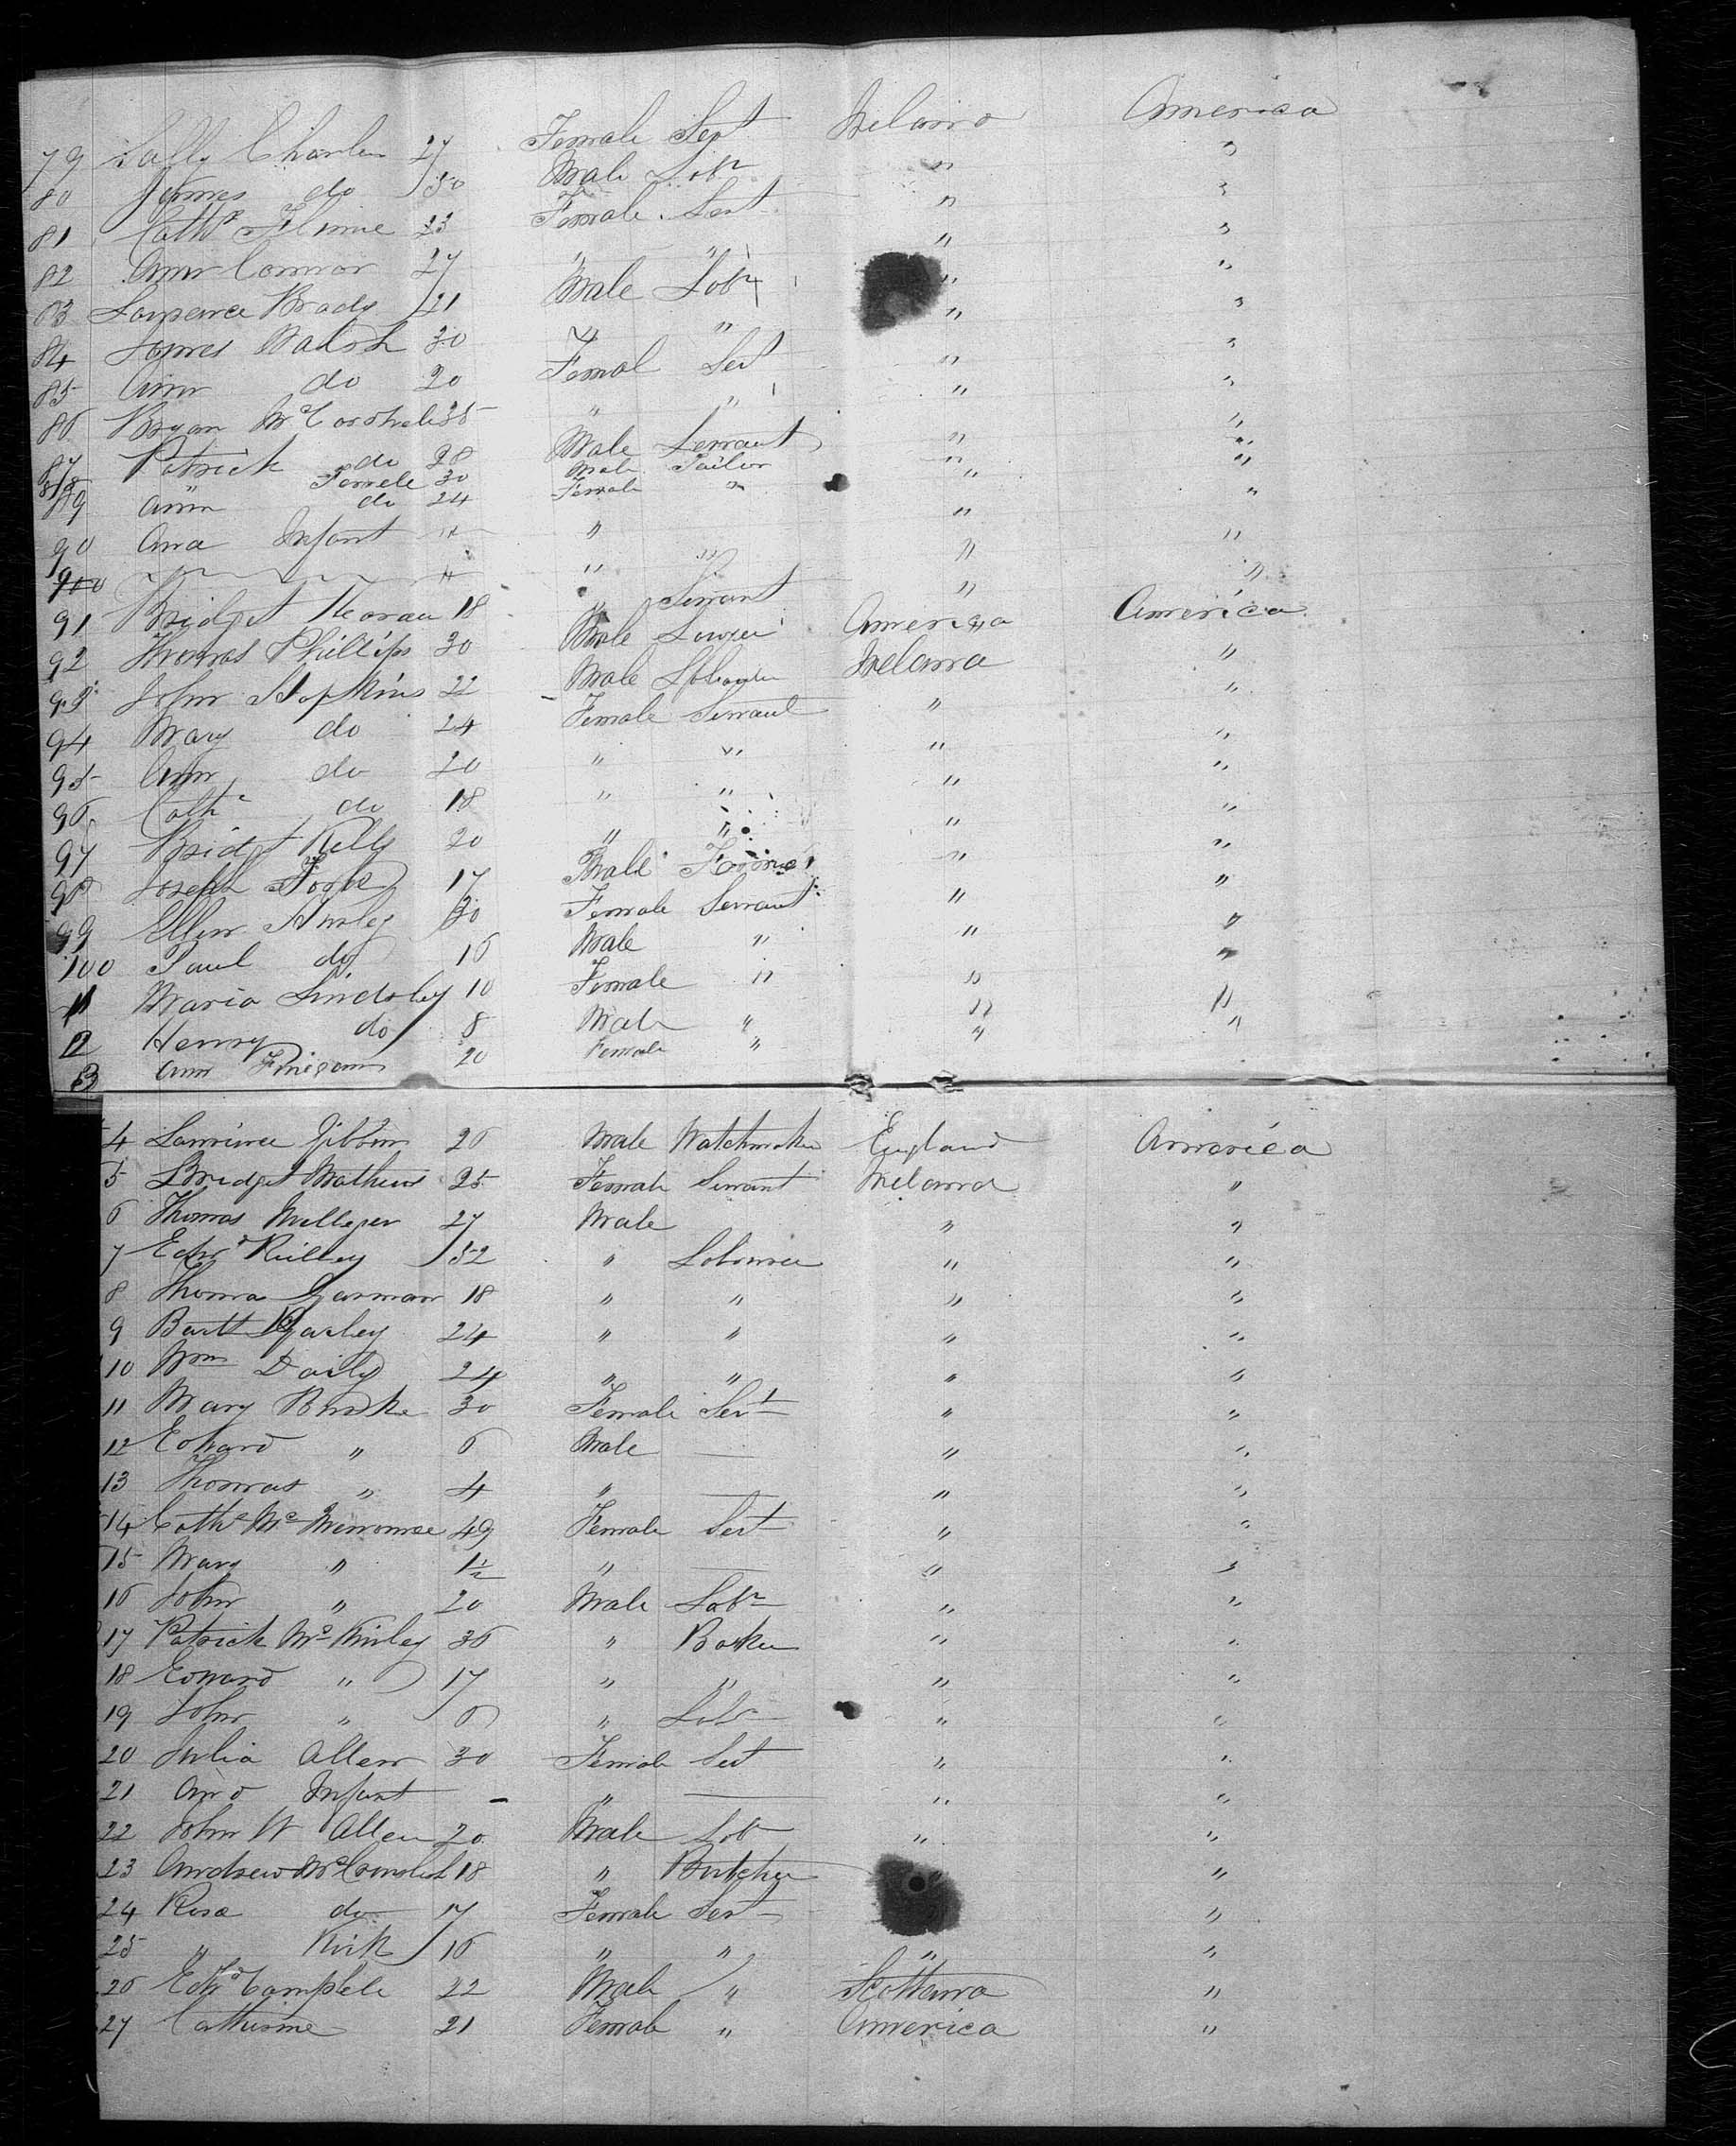 79 Sally Charles 27 Female Sert Ireland America
80 James do 30 Male Labr " "
81 Cathe 23 Female Sert " "
82 Ann Connor 27 " " " "
83 Laurence Brady 21 Male Labr " "
84 James Walsh 30 " " " "
85 Ann do 20 Femal Sert " "
86 Bryan 35 " " " "
87 Patrick do 28 Male Servant " "
88 " Female 30 Male Tailor " "
89 Ann do 24 Female " " "
90 Ana Infant " " "
100 " " " "
91 Bridget 18 " Servant " "
92 Thomas Phillips 30 Male America America
93 John Hopkins 22 Male Ireland "
94 Mary do 24 Female Servant " "
95 Ann do 20 " " " "
96 Cathe do 18 " " " "
97 Bridgt Kelly 20 " " " "
98 Joseph 17 Male " "
99 Ellen 30 Female Servant " "
100 Paul do 16 Male " " "
11 Maria Lindsley 10 Female " " "
12 Henry do 8 Male " " "
3 Ann Finegan 20 Female " "
4 Lawrence Gibbon 26 Male Watchmaker England America
5 Bridget Mathews 25 Female Servant Ireland "
6 Thomas 27 Male " "
7 Edwd Reilley 32 " " "
8 Thoma Garman 18 " " " "
9 Bartt 24 " " " "
10 Wm Daily 24 " " " "
11 Mary Burke 30 Female Sert " "
12 Edward " 6 Male — " "
13 Thomas " 4 " — " "
14 Cathe 49 Female Sert " "
15 Mary " 1½ " — " "
16 John " 20 Male Labr " "
17 Patrick McKinley 36 " Baker " "
18 Edward " 17 " " " "
19 John " 6 " Labr " "
20 Julia Allen 30 Female Sert " "
21 And Infant - " — " "
22 John W Allen 20 Male Lab " "
23 Andrew 18 " Butcher " "
24 Rose do 17 Female Sert "
25 " Kirk 16 " " " "
26 Edwd Campbele 22 Male " Scotland "
27 Catherine 21 Female " America "